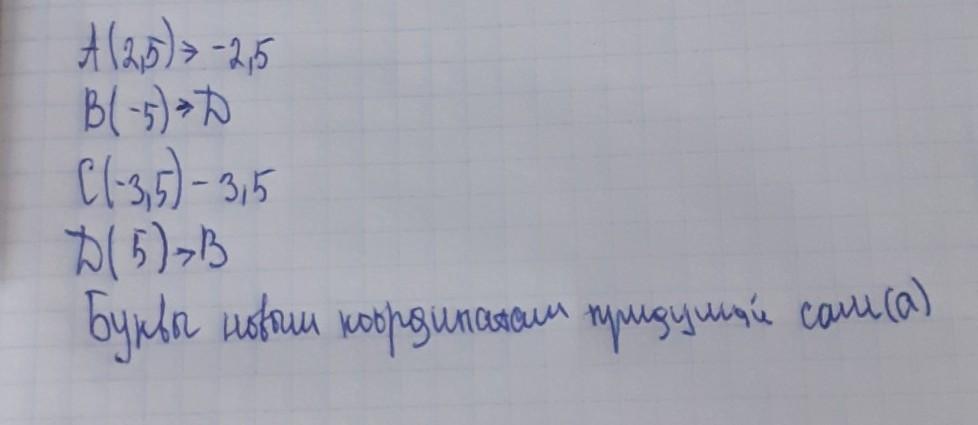 A(2,5)→ -2,5
B(-5)→D
C(-3,5) - 3,5
D( 5)→B
Буквы новым координатам придумай сам(а)